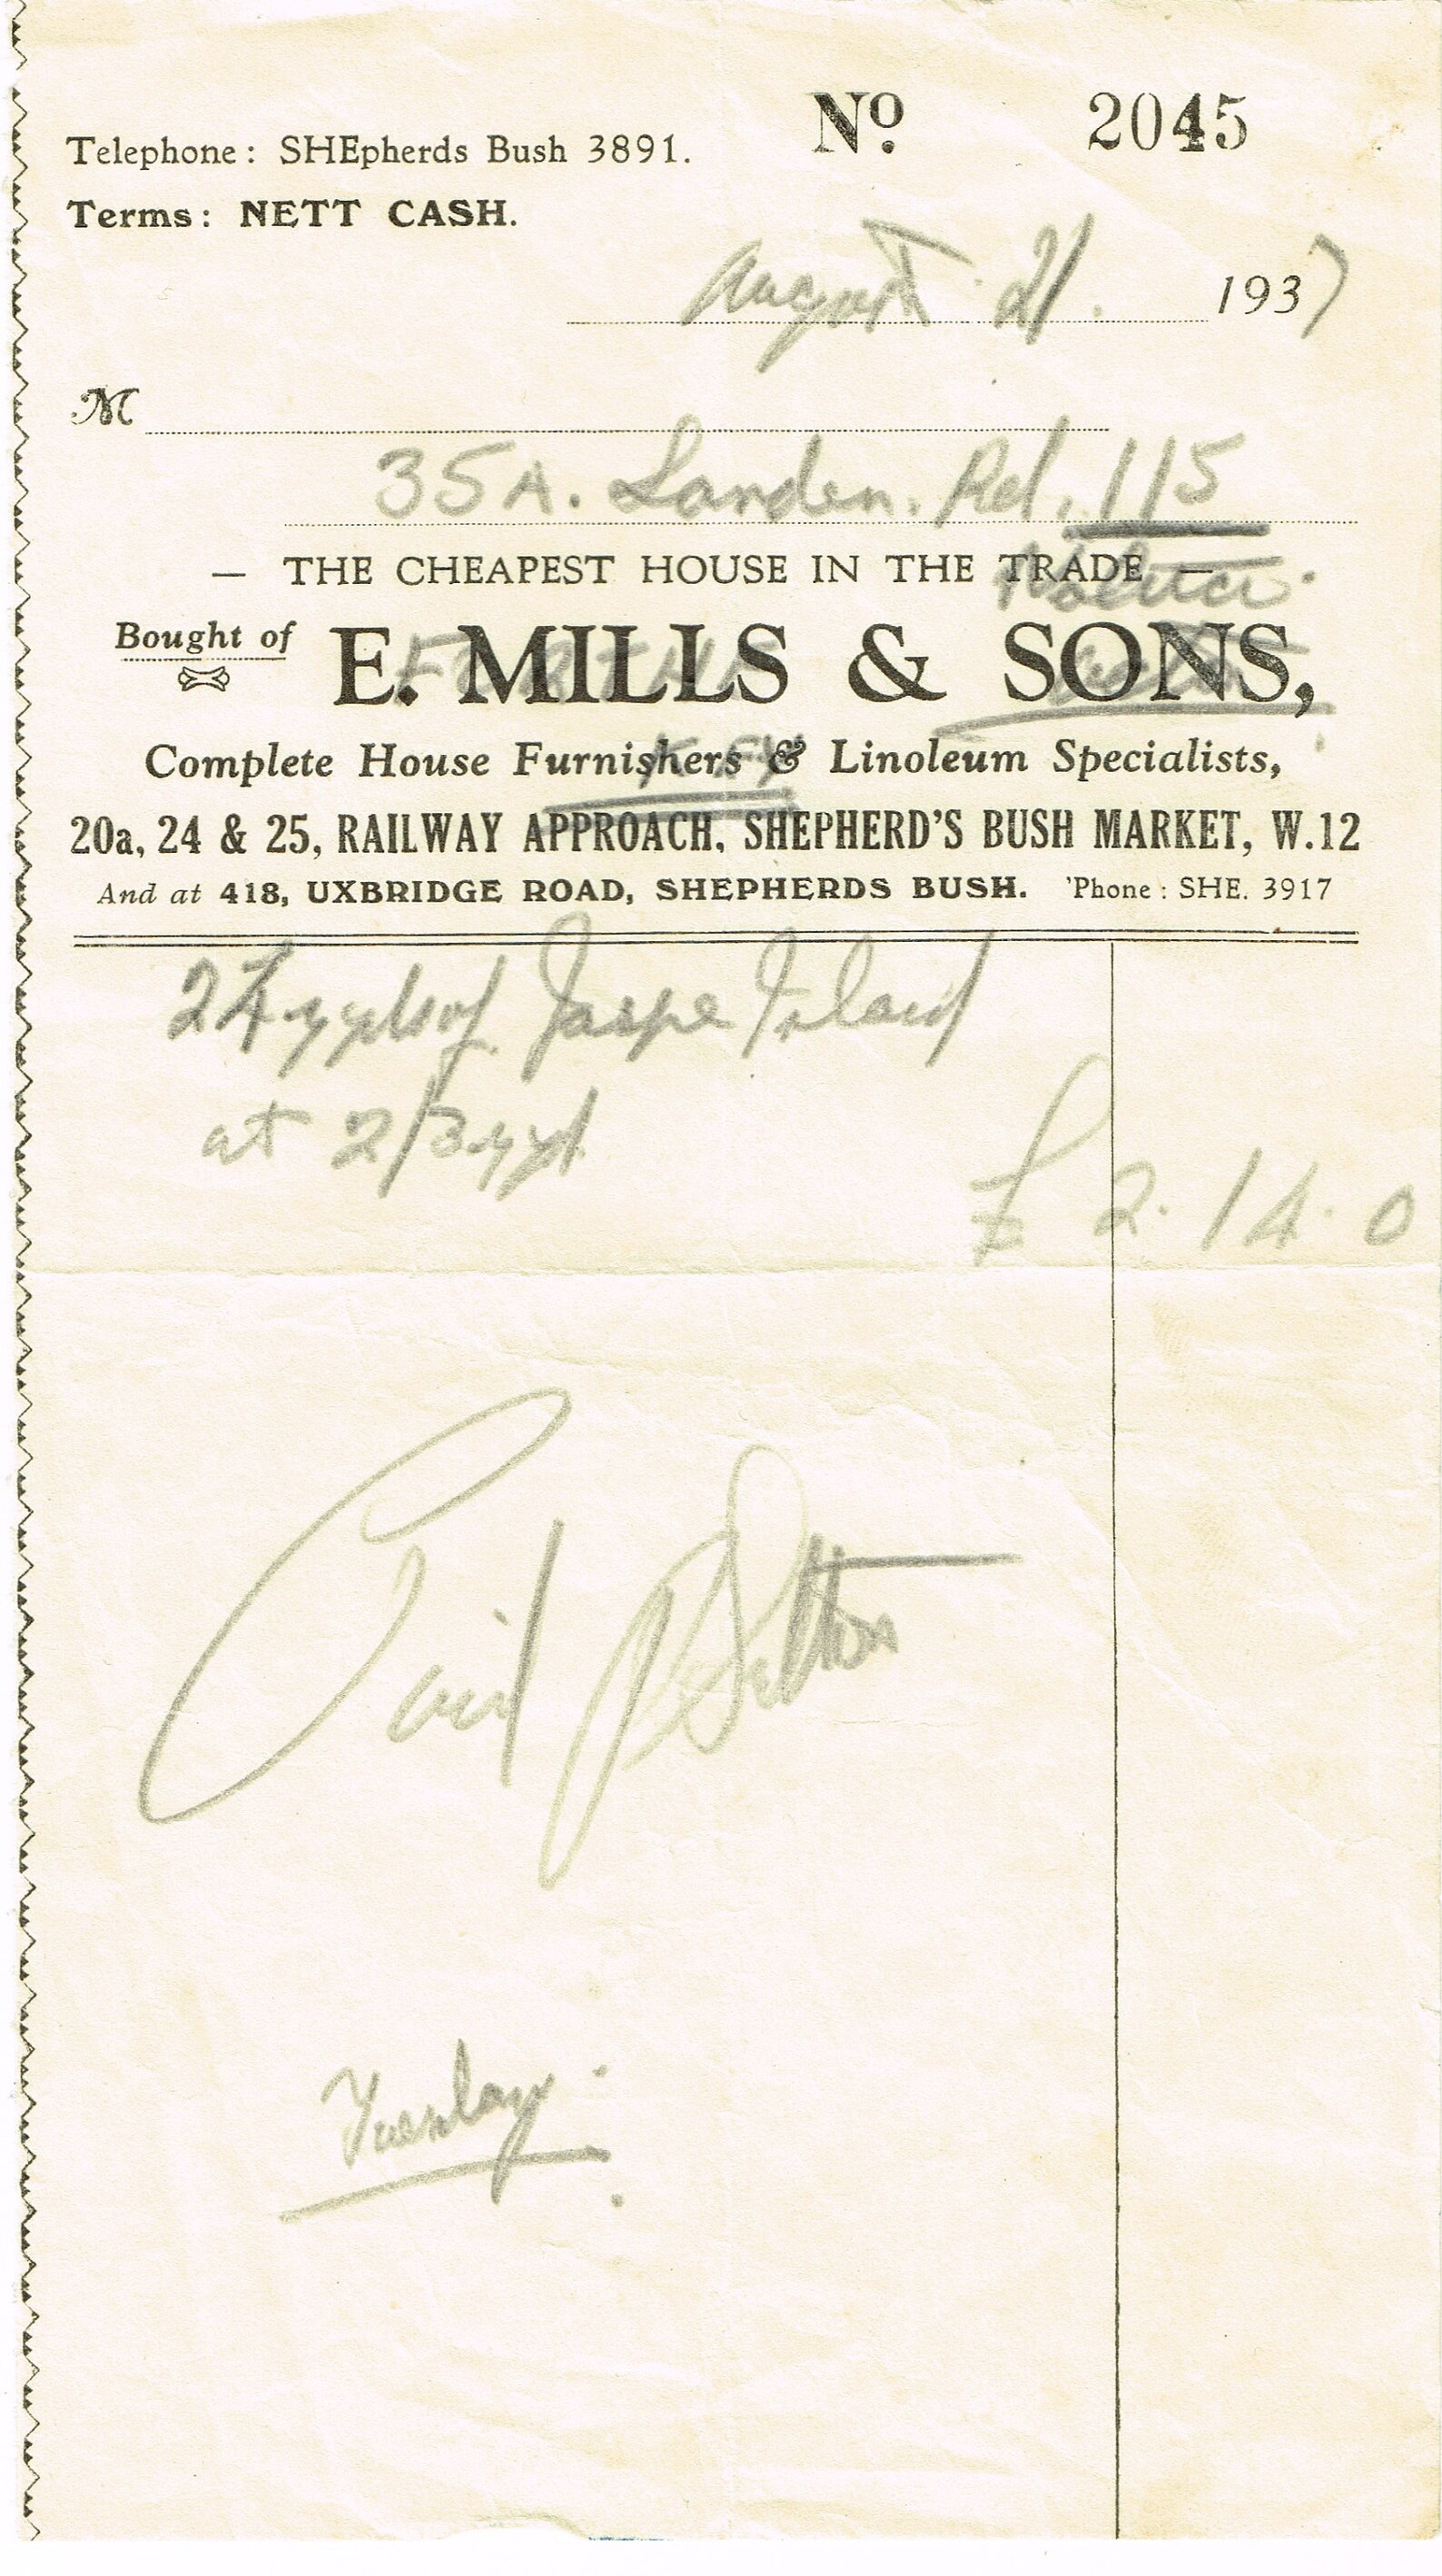 Nº 2045
Telephone: SHEpherds Bush 3891.
Terms: NETT CASH.
August 21. 1937
M
35A. Landen. Rd. 115
— THE CHEAPEST HOUSE IN THE TRADE —
Bought of E. MILLS & SONS,
Complete House Furnishers & Linoleum Specialists,
20a, 24 & 25, RAILWAY APPROACH, SHEPHERD'S BUSH MARKET, W.12
And at 418, UXBRIDGE ROAD, SHEPHERDS BUSH. 'Phone: SHE. 3917
24 yds of Jaspe Inlaid
at 2/3 yd
£ 2. 14. 0
Paid
Tuesday.